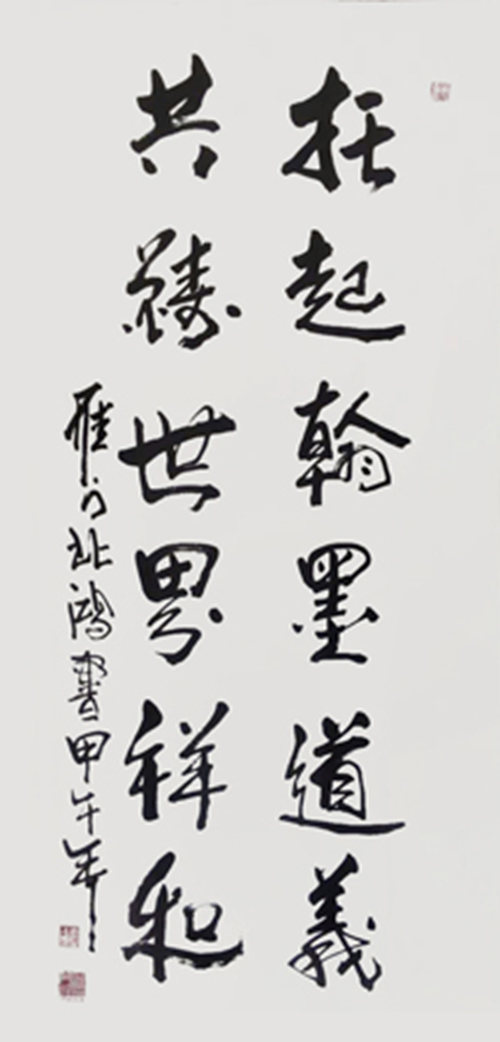 托起翰墨道義
共禱世界祥和
雁門北鴻書甲午年